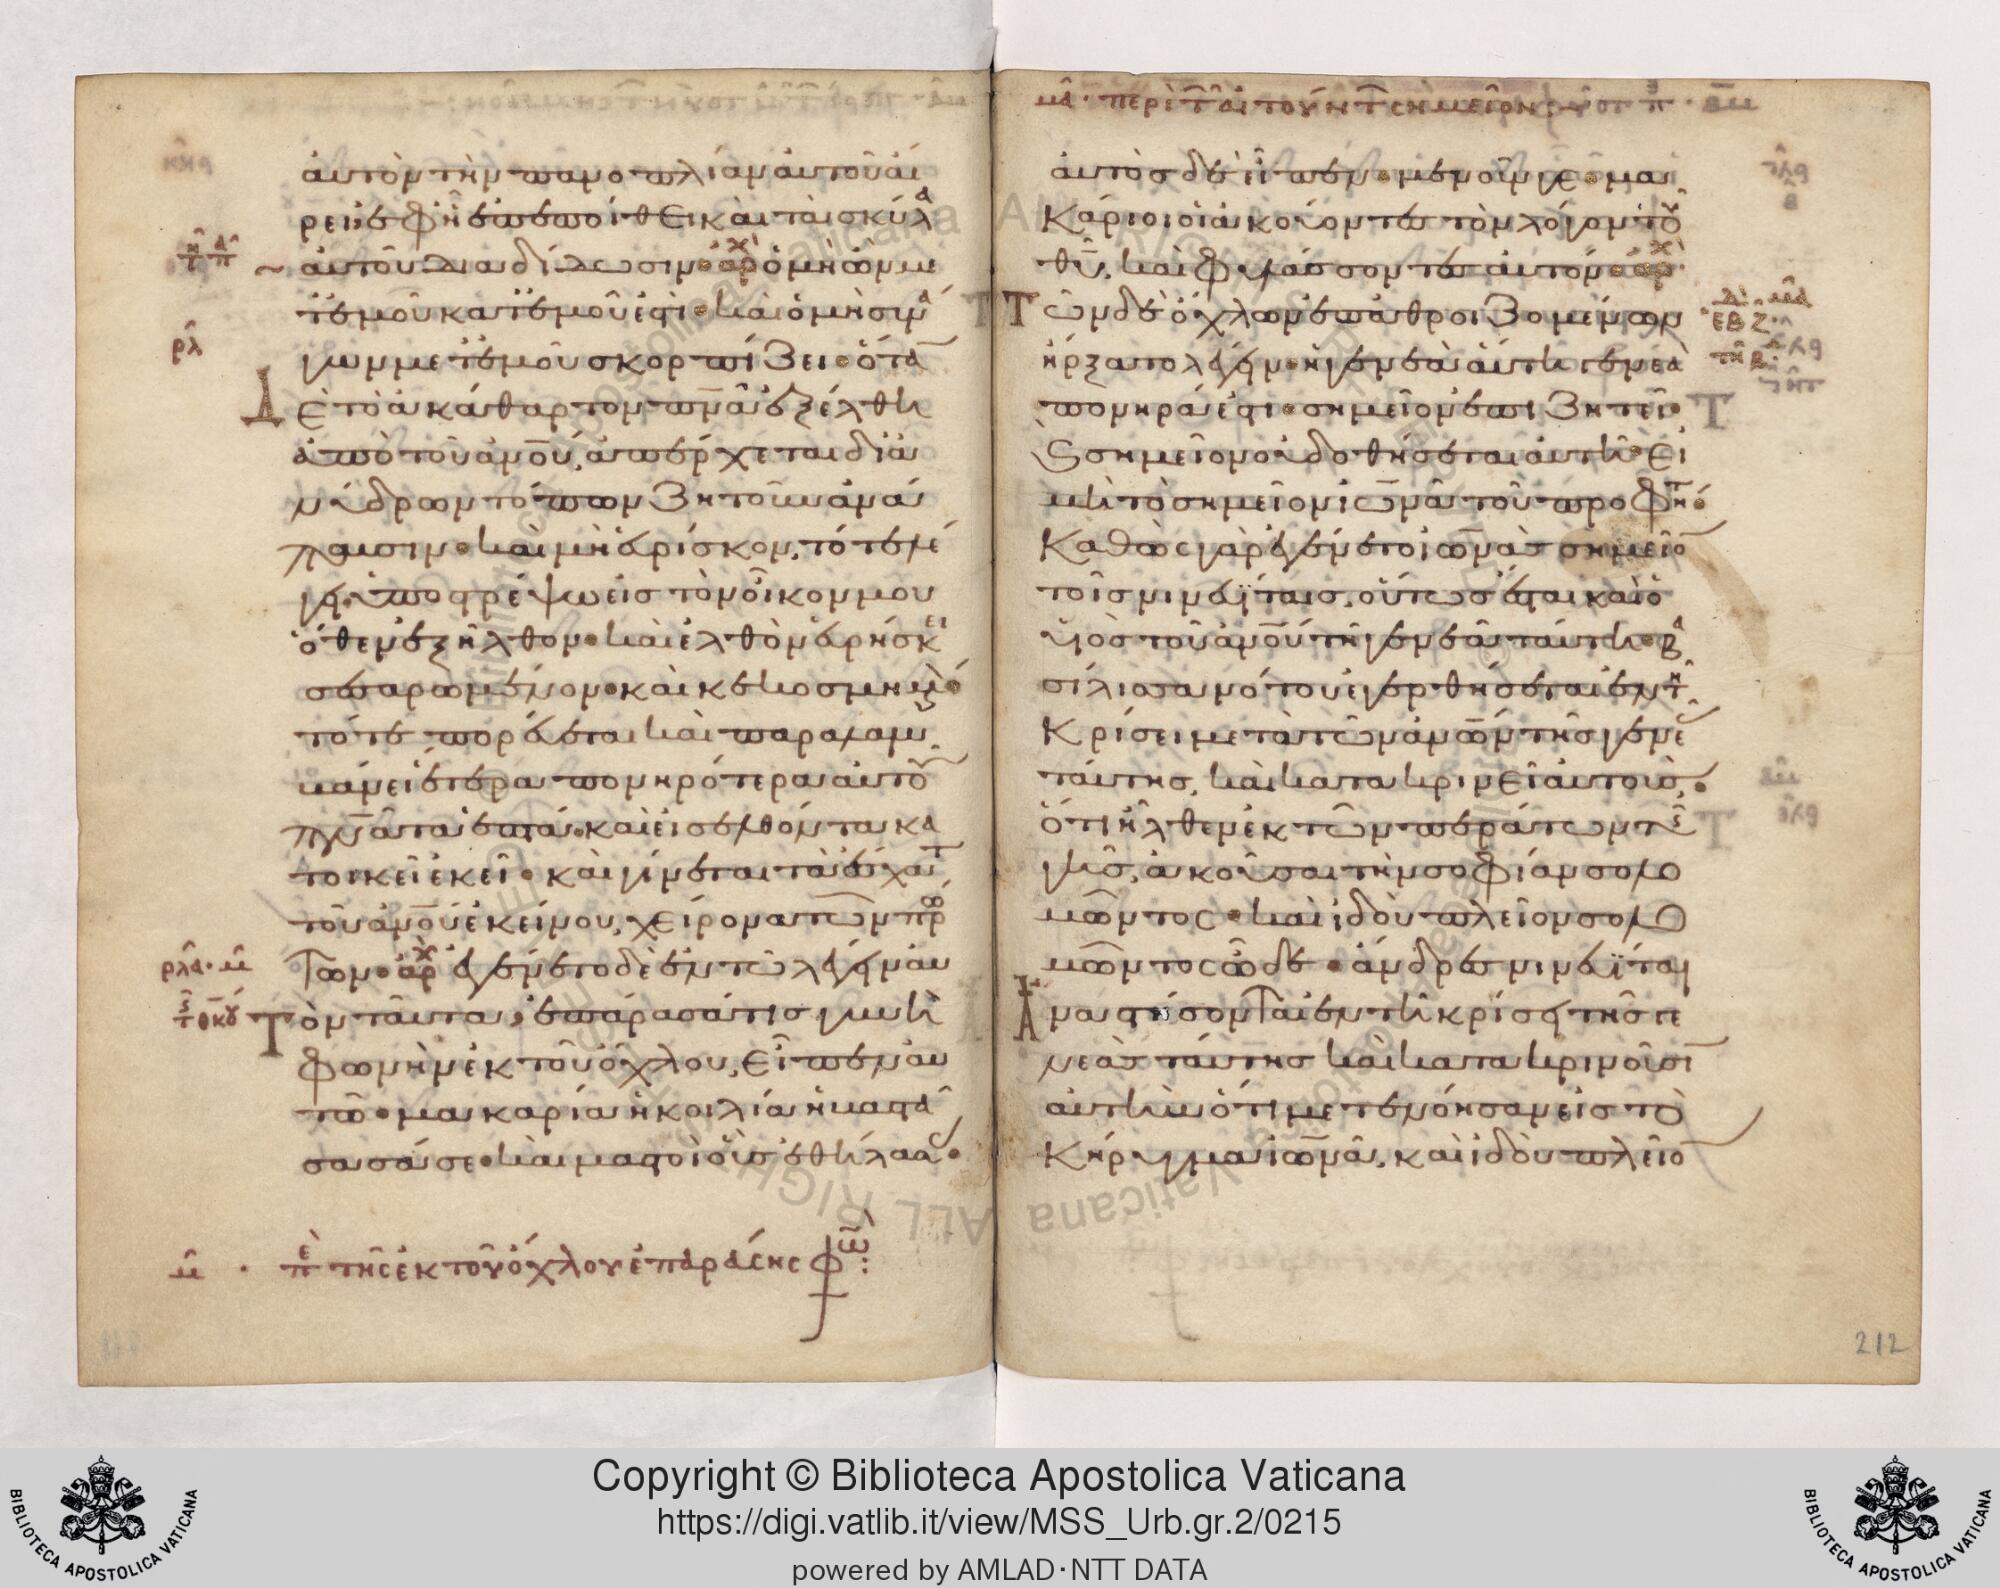 αὐτὸν τὴν πανοπλίαν αὐτοῦ αἴ
ρει ἐφ ἧ ἐπεποίθει καὶ τὰ σκύλα
αὐτοῦ διαδίδωσιν· ἀρχ ὁ μὴ ὢν με
τ ἐμοῦ κατ ἐμοῦ ἐστι· καὶ ὁ μὴ συνά
ρλ
γων μετ ἐμοῦ σκορπίζει· ὅτα
Δὲ τὸ ἀκάθαρτον πνᾶ ἐξέλθη
ἀπὸ τοῦ ἀνου, ἀπέρχεται δι ἀ
νύδρων τόπων ζητοῦν ἀνά
παυσιν· καὶ μὴ εὑρίσκον, τότε λέ
γει ὑποστρέψω εἰς τὸν οἶκον μου
ὅθεν ἐξῆλθον· καὶ ἐλθὸν εὑρήσκει
σεσαρωμένον· καὶ κεκοσμημε
τότε πορεύεται καὶ παραλαμ
βάνει ἕτερα πονηρότερα αὐτοῦ
πνᾶτα ἑπτά· καὶ εἰσελθόντα κα
τοικεῖ ἐκεῖ· καὶ γίνεται τὰ ἔσχατ
τοῦ ἀνου ἐκείνου, χείρονα τῶν πρώ
ρλα· μ
των· ἀρχ ἐγένετο δὲ ἐν τῶ λέγειν αὐ
Τὸν ταῦτα, ἐπάρασά τις γυνὴ
φωνὴν ἐκ τοῦ ὄχλου, εἶπεν αὐ
τῶ· μακαρία ἡ κοιλία ἡ βαστά
σασά σε· καὶ μαστοὶ οὓς ἐθήλασ
μ · πε τῆς ἐκ τοῦ ὄχλου ἐπαράσης φω:
μα· περὶ τ αἰτούντ σημεῖον
αὐτὸς δὲ εἶπεν· μενοῦνγε· μα
κάριοι οἱ ἀκούοντες τὸν λόγον τοῦ
θυ, καὶ φυλάσσοντες αὐτόν· ἀρχ
Τῶν δὲ ὄχλων ἐπαθροιζομένων
ἤρξατο λέγειν· ἡ γενεὰ αὕτη γενεὰ
πονηρά ἐστι· σημεῖον ἐπιζητεῖ·
καὶ σημεῖον οὐ δοθήσεται αὐτῆ· εἰ
μὴ τὸ σημεῖον ἰωνᾶ τοῦ προφητ·
Καθὼς γὰρ ἐγένετο ἰωνᾶς σημεῖο
τοῖς νινευΐταις, οὕτως ἔσται καὶ ὁ
υἱὸς τοῦ ἀνου τῆ γενεᾶ ταύτη· βα
σίλισσα νότου ἐγερθήσεται ἐν τῆ
κρίσει μετὰ τῶν ἀνων τῆς γενε
ταύτης, καὶ κατακρινεῖ αὐτούς,
ὅτι ἦλθεν ἐκ τῶν περάτων τῆς
γῆς, ἀκοῦσαι τὴν σοφίαν σολο
μῶντος· καὶ ἰδοὺ πλεῖον σολο
μῶντος ὧδε· ἄνδρες νινευΐται
Ἀναστήσονται ἐν τῆ κρίσει τῆς γε
νεᾶς ταύτης καὶ κατακρινοῦσι
αὐτὴν ὅτι μετενόησαν εἰς τὸ
κήρυγμα ἰωνᾶ, καὶ ἰδοὺ πλεῖο
212
Copyright © Biblioteca Apostolica Vaticana
https://digi.vatlib.it/view/MSS_Urb.gr.2/0215
powered by AMLAD·NTT DATA
BIBLIOTECA APOSTOLICA VATICANA
BIBLIOTECA APOSTOLICA VATICANA